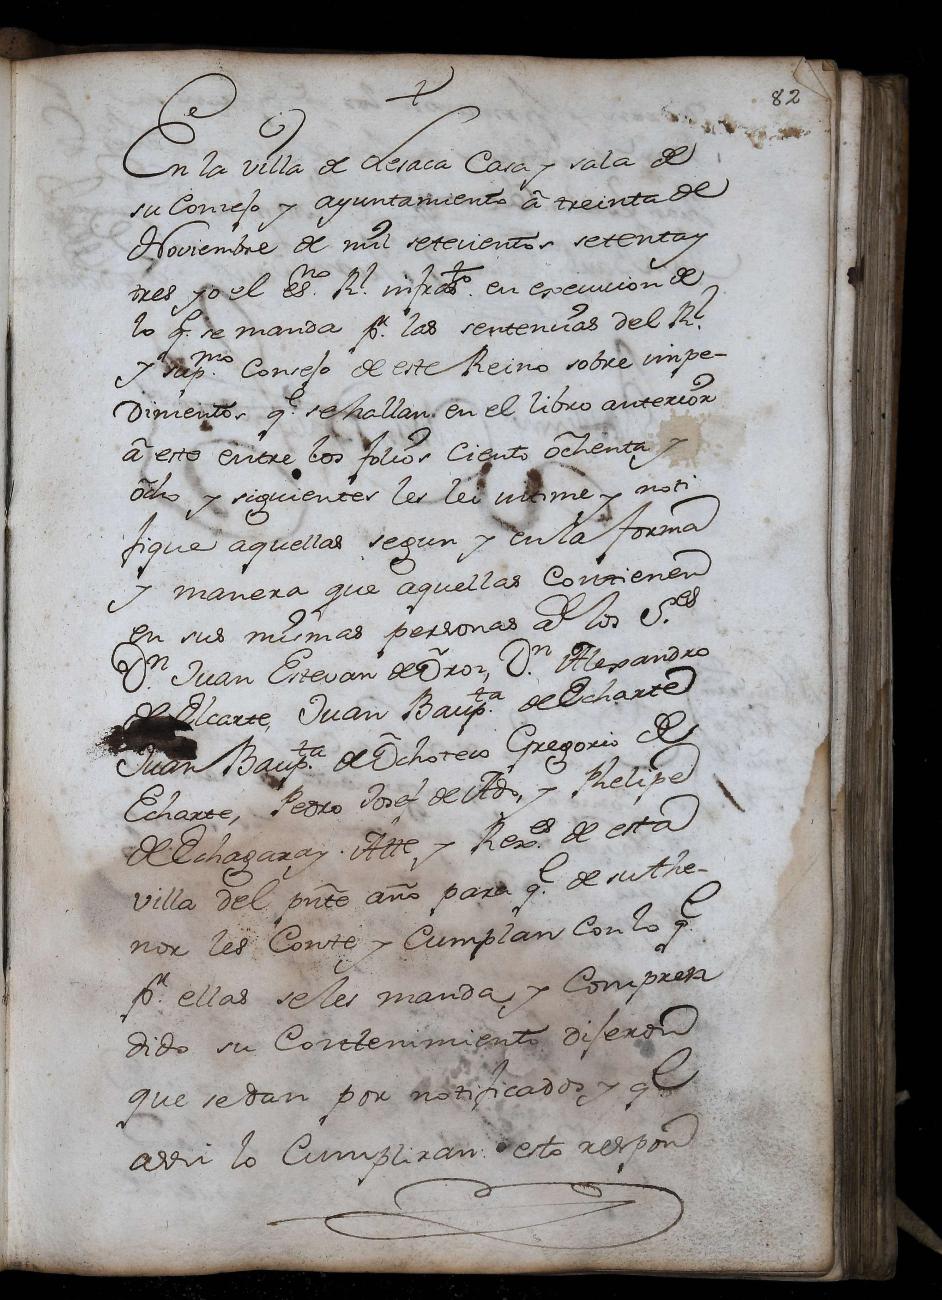 82
En la villa de Lesaca Casa y sala de
su Consejo y ayuntamiento â treinta de
Noviembre de mil setecientos setenta y
tres yo el esno. Rl. infrasto. en execucion de
lo q.e se manda pr. las sentencias del Rl.
y supmo. Consejo de este Reino sobre impe-
dimentos q.e se hallan en el libro anterior
â esto entre los folios Ciento ôchenta y
ôcho y siguientes les lei intime y noti
fique aquellas segun y en la forma
y manera que aquellas Contienen
en sus mismas personas a los Sres
Dn. Juan Estevan de Oroz, Dn. Alexandro
de Elcarte, Juan Baupta. de Echarte
Juan Baupta. de Ochoteco Gregorio de
Echarte, Pedro Josef de Ado, y Phelipe
de Echagaray Alte. y Rexes. de esta
villa del pnte año para q.e de su the-
nor les Conste y Cumplan con lo q.e
pr. ellas se les manda, y Compren
dido su Contenimiento dijeron
que se dan por notificados y q.e
assi lo Cumpliran esto respon